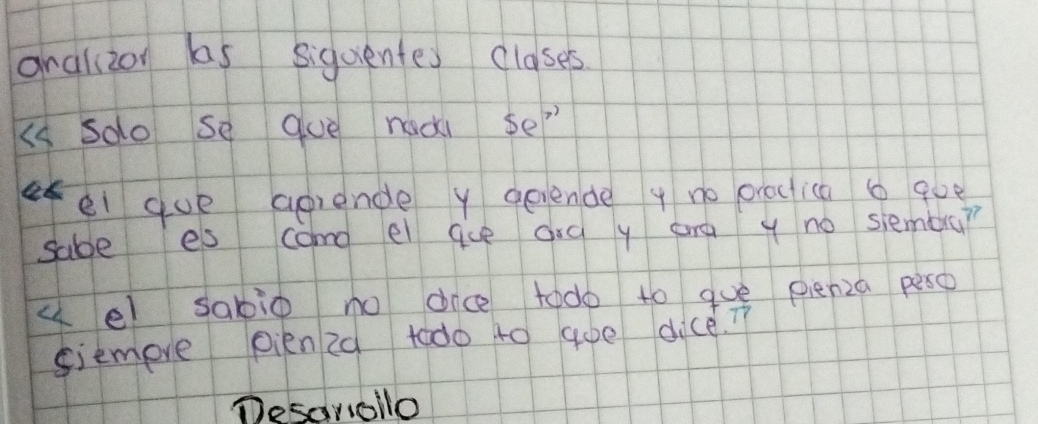 analizar las siguientes clases.
<< solo se que nada se"
<< el que aprende y aprende y no practica lo que
sabe es como el que ara y ara y no siembra"
<< el sabio no dice todo to que pienza pero
siempre pienza todo to que dice."
Desarrollo